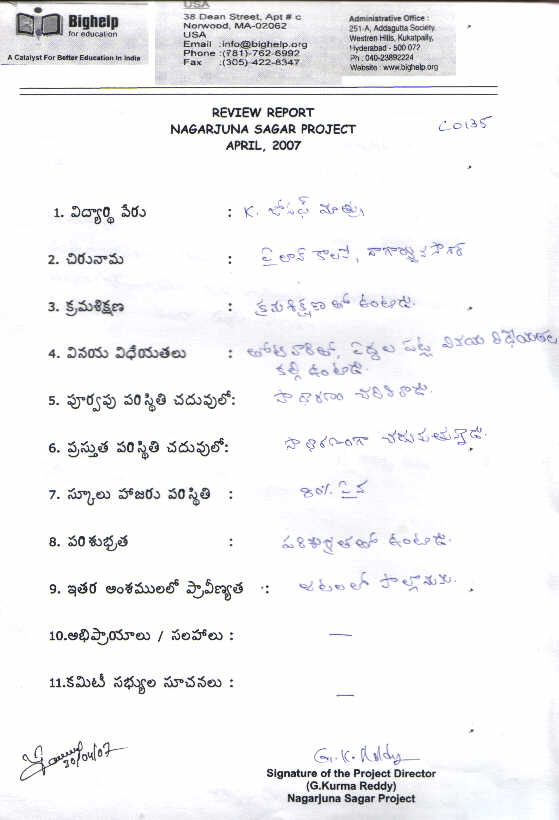 USA
Bighelp
for education
A Catalyst For Better Education In India
38 Dean Street, Apt # c
Norwood, MA-02062
USA
Email :info@bighelp.org
Phone :(781)-762-6992
Fax :(305)-422-8347
Administrative Office :
251-A, Addagutta Society,
Westren Hills, Kukatpally,
Hyderabad - 500 072
Ph : 040-23892224
Website : www.bighelp.org
REVIEW REPORT
NAGARJUNA SAGAR PROJECT
APRIL, 2007
C0135
1. విద్యార్థి పేరు : K. జోసఫ్
2. చిరునామ : పైలాన్ కాలనీ, నాగార్జున సాగర్
3. క్రమశిక్షణ : క్రమశిక్షణతో ఉంటాడు.
4. వినయ విధేయతలు : తోటివారితో, పెద్దల పట్ల వినయ విధేయతలు
కల్గి ఉంటాడు.
5. పూర్వపు పరిస్థితి చదువులో: సాధారణం
6. ప్రస్తుత పరిస్థితి చదువులో: సాధారణంగా చదువుతున్నాడు.
7. స్కూలు హాజరు పరిస్థితి : 80% పైన
8. పరిశుభ్రత : పరిశుభ్రతతో ఉంటాడు.
9. ఇతర అంశములలో ప్రావీణ్యత : ఆటలలో
10.అభిప్రాయాలు / సలహాలు : —
11.కమిటీ సభ్యుల సూచనలు : —
30/04/07
G. K. Reddy
Signature of the Project Director
(G.Kurma Reddy)
Nagarjuna Sagar Project